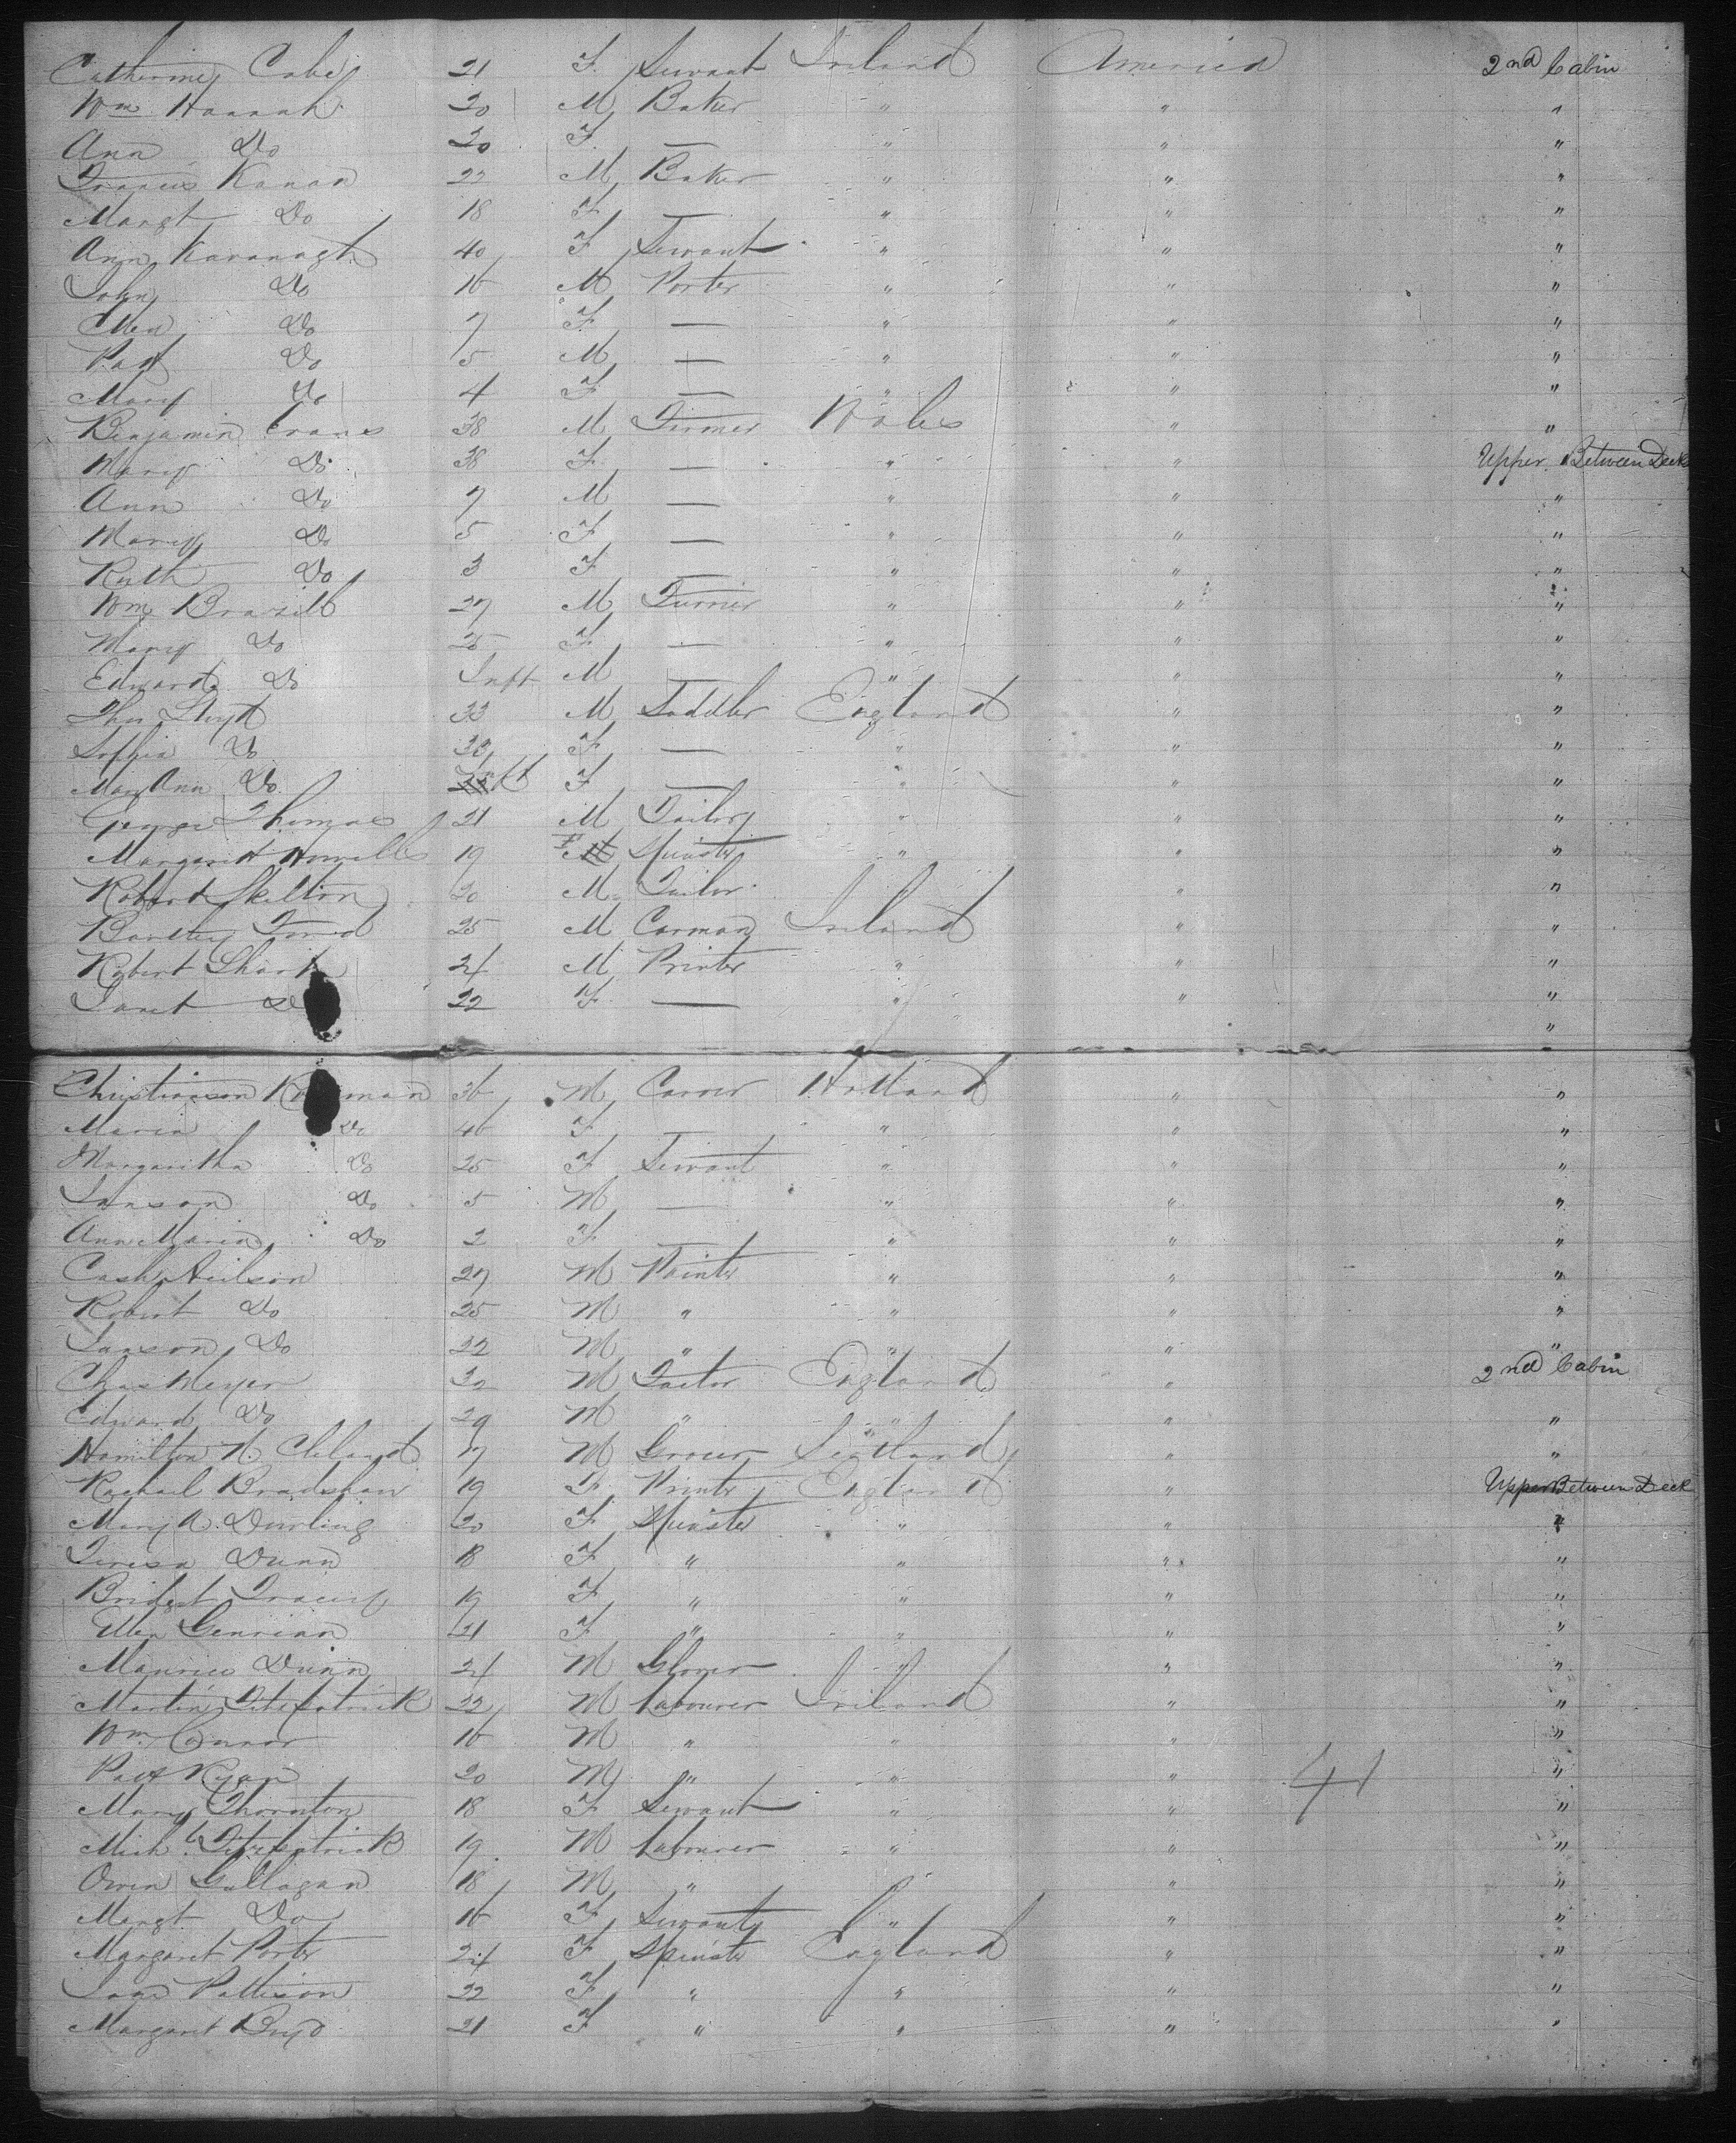 Catherine Cabe 21 F Servant Ireland America 2nd Cabin
Wm Hannah 20 M Baker " " "
Ann Do 20 F — " " "
Francis Kanan 22 M Baker " " "
Margt Do 18 F — " " "
Ann Kavanagh 40 F Servant " " "
John Do 16 M Porter " " "
Do 7 F — " " "
Pat Do 5 M — " " "
Mary Do 4 F — " " "
Benjamin Evans 38 M Farmer Wales " "
Mary Do 38 F — " " Upper Between Decks
Ann Do 7 M — " " "
Mary Do 5 F — " " "
Ruth Do 3 F — " " "
Wm Brazill 27 M " " "
Mary Do 25 F — " " "
Edward Do Inft M — " " "
Thos Lloyd 33 M Saddler England " "
Sophia Do 30 F — " " "
Mary Ann Do Inft F — " " "
George Thomas 21 M Tailor " " "
Margaret Howells 19 F Spinster " " "
Robert Skelton 20 M Tailor " " "
Bartley Ford 25 M Carman Ireland " "
Robert Short 24 M Printer " " "
Janet Do 22 F — " " "
"
Christianson man 36 M Carver Holland " "
Maria Do 46 F — " " "
Margaritha Do 25 F Servant " " "
Do 5 M — " " "
Ann Maria Do 2 F — " " "
Neilson 27 M Painter " " "
Robert Do 25 M " " " "
Do 22 M " " " "
Chas Meyer 32 M England " 2nd Cabin
Edward Do 29 M " " " "
Hamilton M. Cleland 17 M Grocer Scotland " "
Rachael Bradshaw 19 F Printer England " Upper Between Deck
Mary A. Durling 20 F Spinster " " "
Teresa Dunn 18 F " " " "
Bridget Tracey 19 F " " " "
Ellen 21 F " " " "
Maurice Dunn 24 M Glover " " "
Martin Fitzpatrick 22 M Labourer Ireland " "
Wm Connor 16 M " " " "
Patt Ryan 20 M " " " 41 "
Mary Thornton 18 F Servant " " "
Michl Fitzpatrick 19 M Labourer " " "
Owen Gallagan 18 M " " " "
Margt Do 16 F Servant " " "
Margaret Porter 24 F Spinster England " "
Jane Pattison 22 F " " " "
Margaret Boyd 21 F " " " "